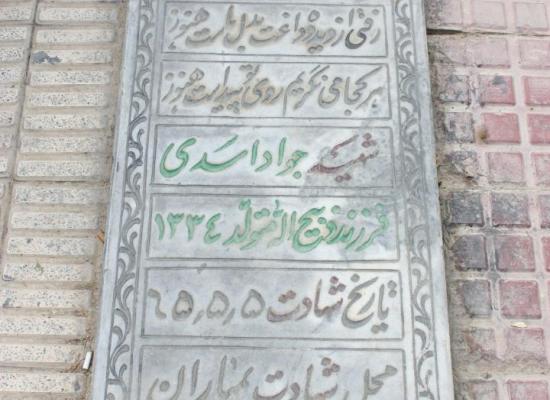 رفتی از دیده و داغت بدل ماست هنوز
هر کجا می نگریم روی تو پیداست هنوز
شهید جواد اسدی
فرزند ذبیح اله متولد ١٣٣٤
تاریخ شهادت ٦٥٫٥٫٥
محل شهادت بمباران